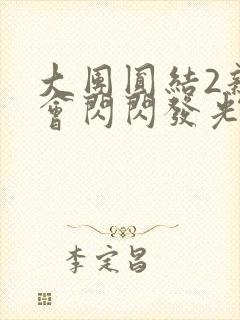 大團圓結2新
會閃閃發光
李定昌